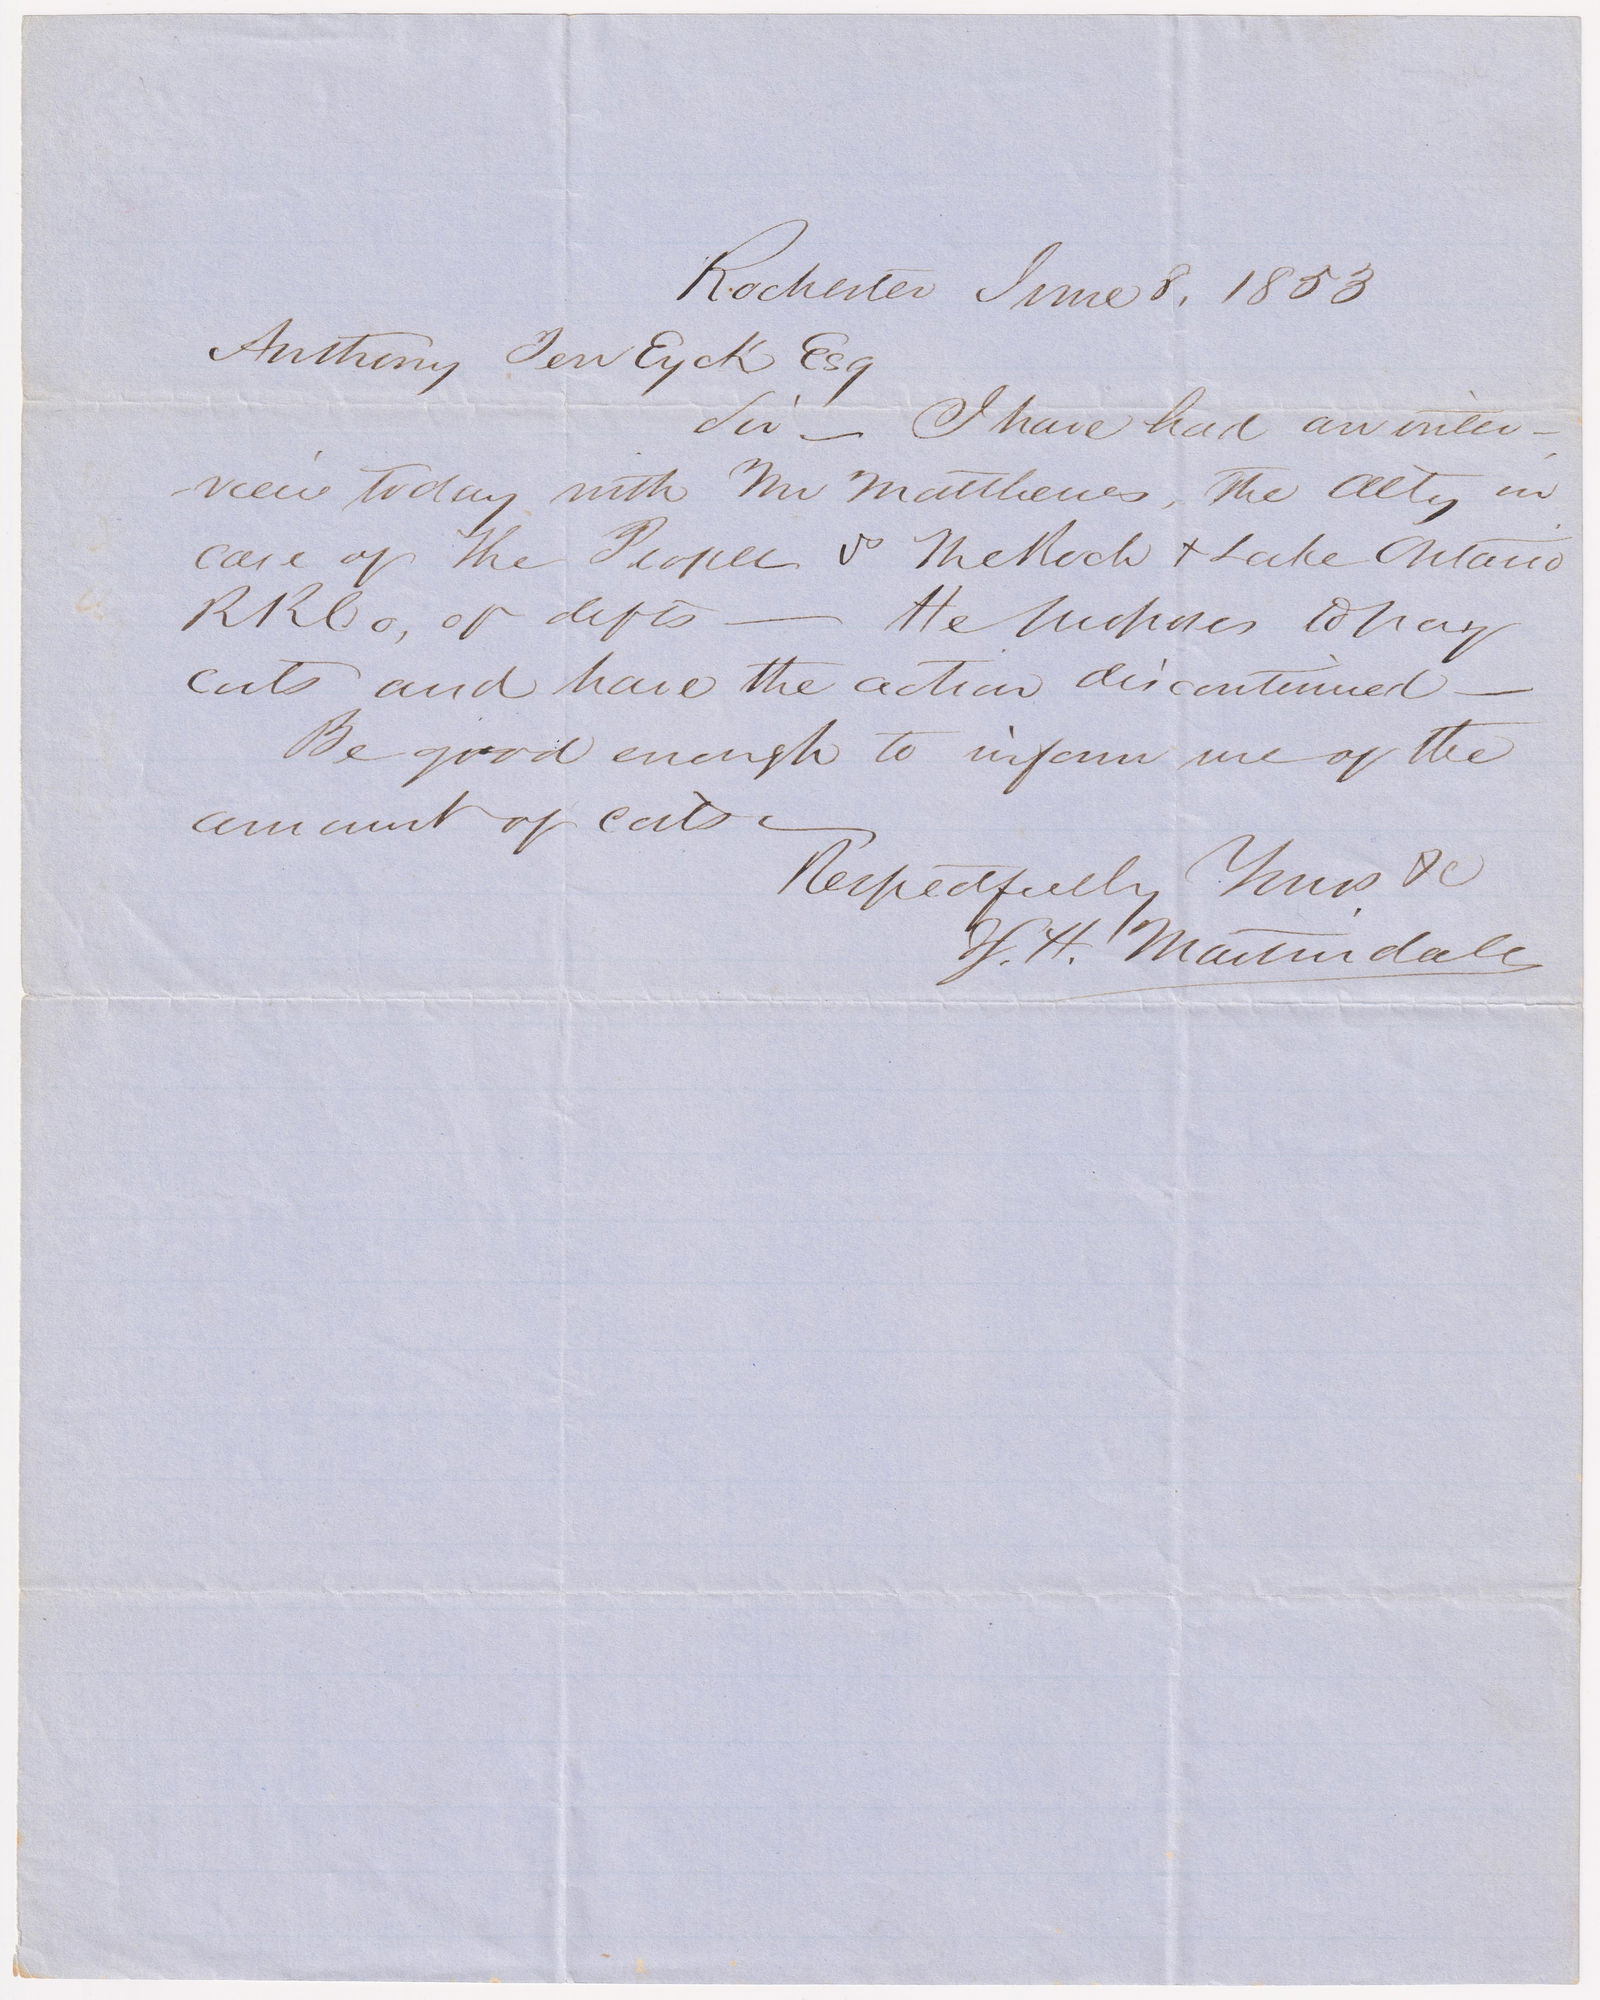 Rochester June 8, 1853
Anthony Ten Eyck Esq
Sir — I have had an inter-
-view today with Mr Matthews, the Atty in
case of The People vs The Roch & Lake Ontario
RR Co, of defts — He proposes to pay
costs and have the action discontinued —
Be good enough to inform me of the
amount of costs —
Respectfully Yours &c
F. H. Martindale